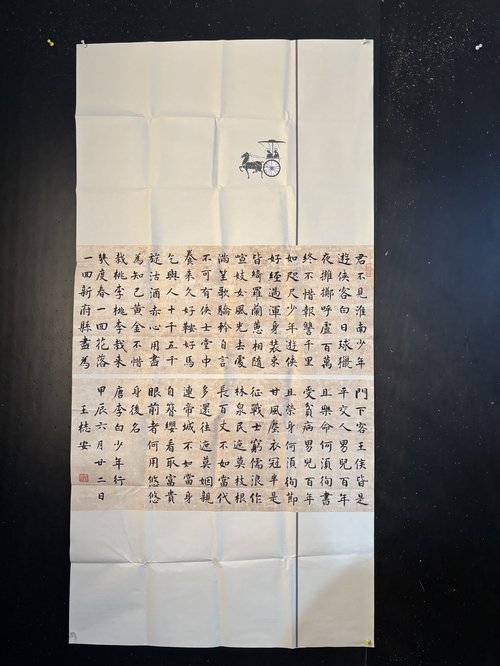 君不見淮南少年
遊俠客白日球獵
夜擁擲呼盧百萬
終不惜報讐千里
如咫尺少年遊俠
好經過渾身裝束
皆綺羅蘭蕙相隨
喧妓女風光去處
滿笙歌驕矜自言
不可有俠士堂中
養來久好鞍好馬
乞與人十千五千
旋沽酒赤心用盡
為知己黃金不惜
栽桃李桃李栽來
幾度春一回花落
一回新府縣盡為
門下客王侯皆是
平交人男兒百年
且樂命何須徇書
受貧病男兒百年
且榮身何須徇節
甘風塵衣冠半是
征戰士窮儒浪作
林泉民遮莫枝根
長百丈不如當代
多還往遮莫姻親
連帝城不如當身
自簪纓看取富貴
眼前者何用悠悠
身後名
唐李白少年行
甲辰六月廿二日
王 安